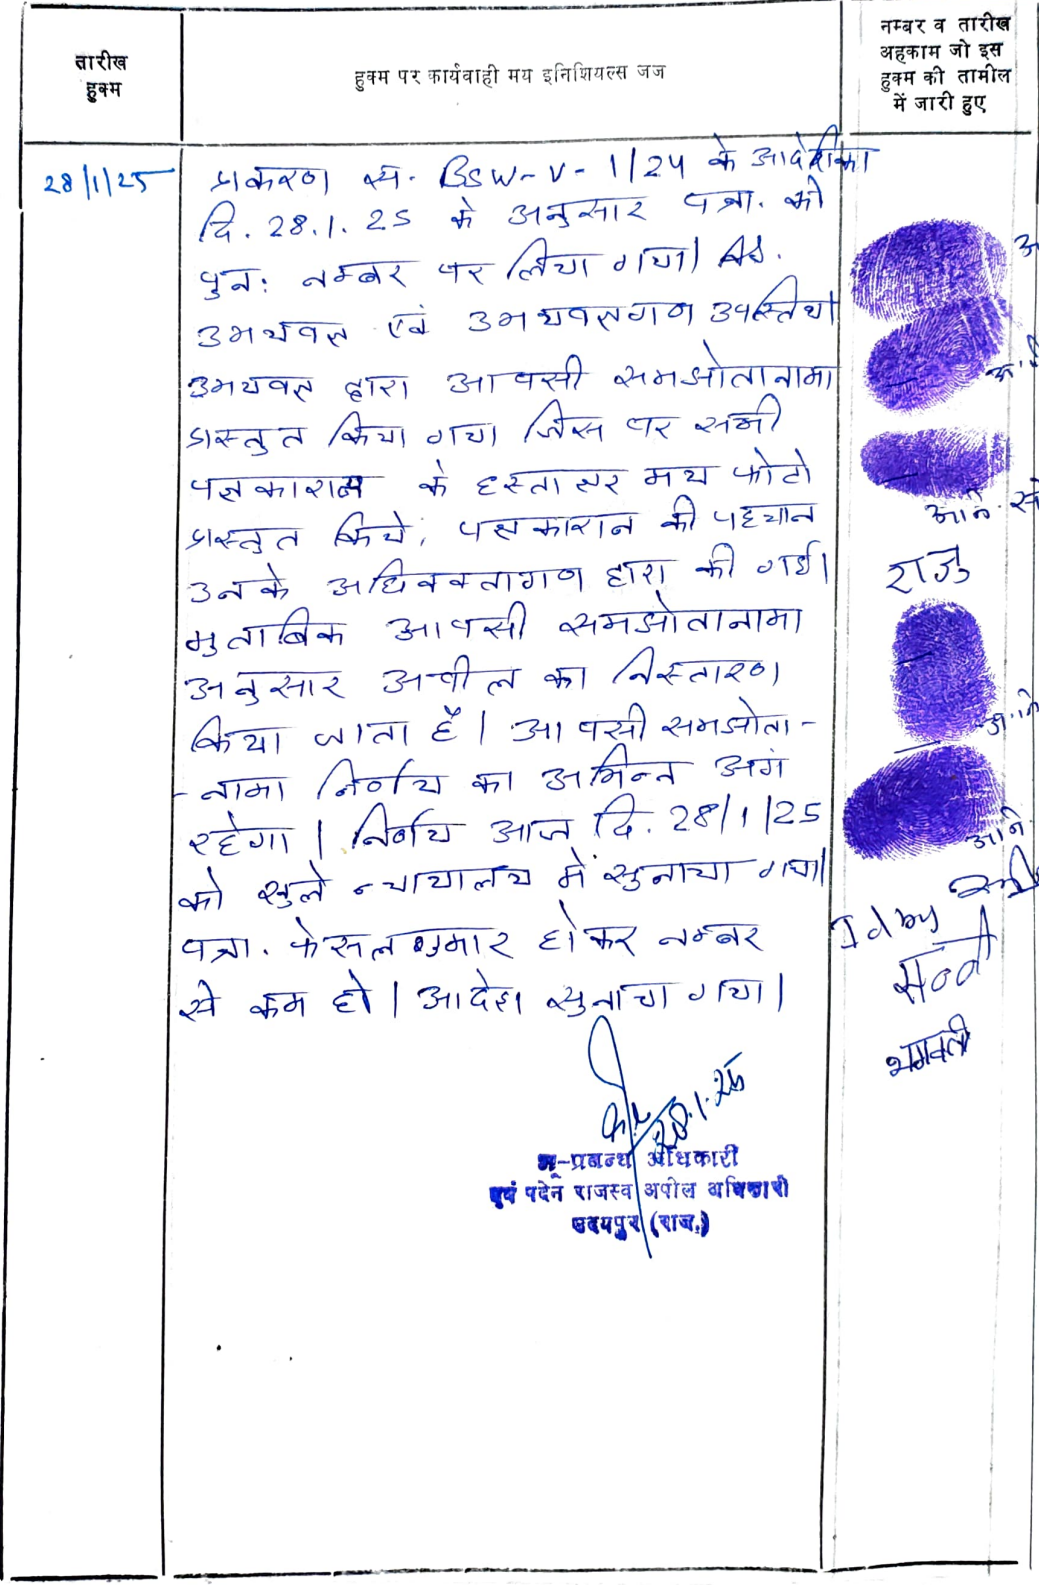 तारीख
हुक्म
हुक्म पर कार्यवाही मय इनिशियल्स जज
नम्बर व तारीख
अहकाम जो इस
हुक्म की तामील
में जारी हुए
28/1/25
प्रकरण सं. BSW-V-1/24 के आदेशिका
दि. 28.1.25 के अनुसार पत्रा. को
पुनः नम्बर पर लिया गया।
उभयपक्ष एवं उभयपक्षगण उपस्थित।
उभयपक्ष द्वारा आपसी समझोतानामा
प्रस्तुत किया गया जिस पर सभी
पक्षकारान के हस्ताक्षर मय फोटो
प्रस्तुत किये, पक्षकारान की पहचान
उनके अधिवक्तागण द्वारा की गई।
मुताबिक आपसी समझोतानामा
अनुसार अपील का निस्तारण
किया जाता है। आपसी समझोता-
-नामा निर्णय का अभिन्न अंग
रहेगा। निर्णय आज दि. 28/1/25
को खुले न्यायालय में सुनाया गया।
पत्रा. फेसल शुमार होकर नम्बर
से कम हो। आदेश सुनाया गया।
28.1.25
भू-प्रबन्ध अधिकारी
एवं पदेन राजस्व अपील अधिकारी
उदयपुर (राज.)
राजु
Id by
भगवती